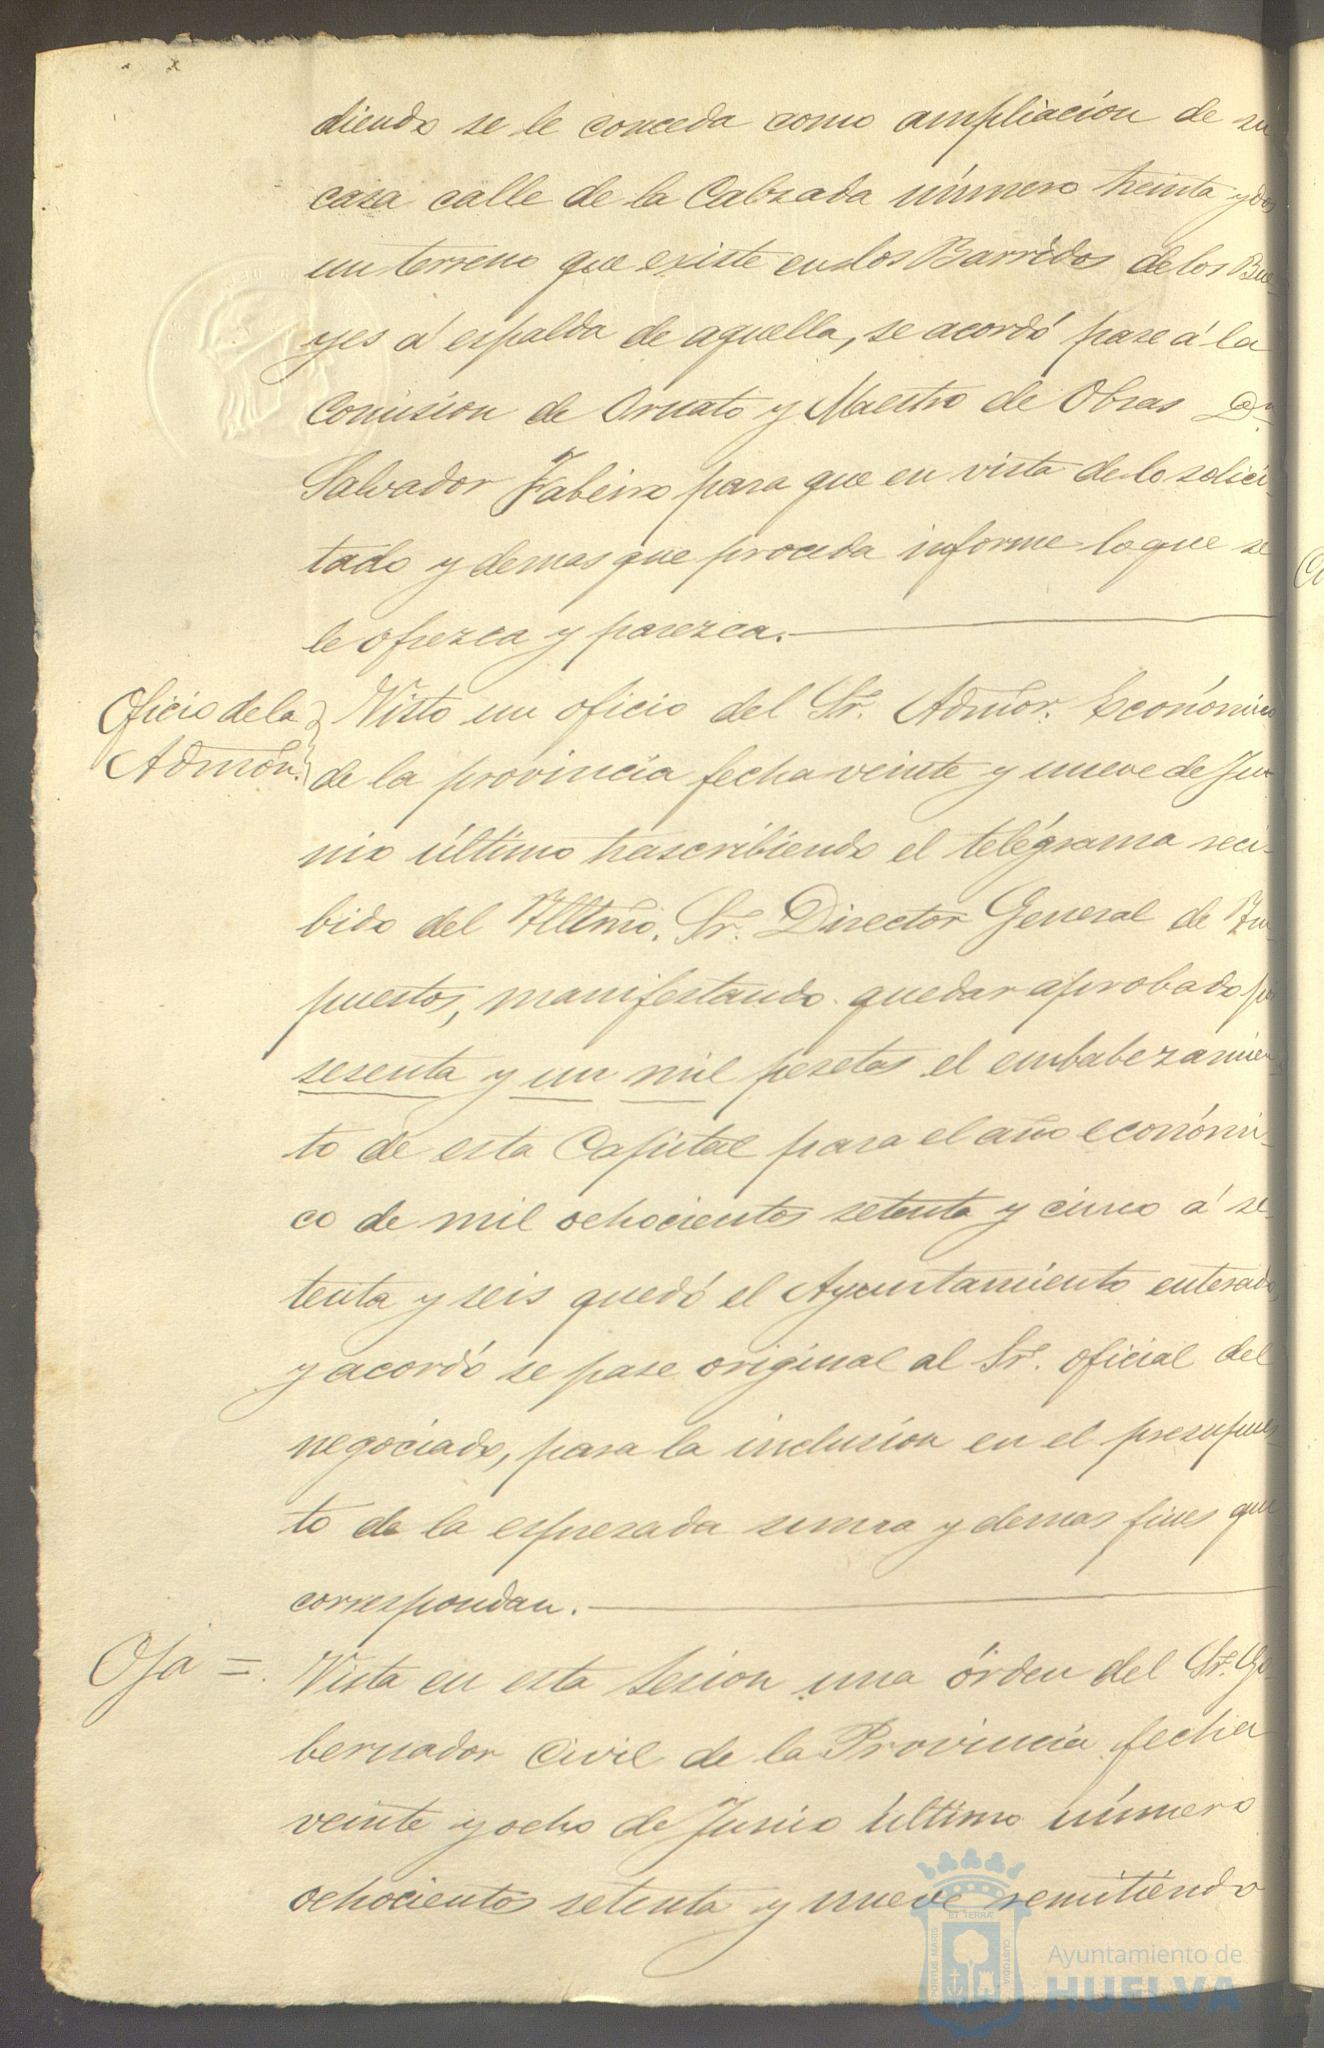 diendo se le conceda como ampliacion de su
casa calle de la Calzada número treinta y dos
un terreno que existe en los Barridos de los Bue-
yes á espalda de aquella, se acordó pase á la
Comision de Ornato y Maestro de Obras Dn.
Salvador para que en vista de lo solici-
tado y demas que proceda informe lo que se
le ofrezca y parezca.
Oficio de la
Admón.
Visto un oficio del Sr. Admor. Económico
de la provincia fecha veinte y nueve de Ju-
nio último trascribiendo el telégrama reci-
bido del Illmo. Sr. Director General de Im-
puestos, manifestando quedar aprobado por
sesenta y un mil pesetas el embabezamien-
to de esta Capital para el año económi-
co de mil ochocientos setenta y cinco á se-
tenta y seis quedó el Ayuntamiento enterado,
y acordó se pase original al Sr. oficial del
negociado, para la inclusion en el presupues-
to de la espresada suma y demas fines que
correspondan.
Vista en esta Sesion una órden del Sr. Go-
bernador Civil de la Provincia fecha
veinte y ocho de Junio último número
ochocientos setenta y nueve remitiendo
PORTUS MARIS ET TERRÆ CUSTODIA
Ayuntamiento de
HUELVA